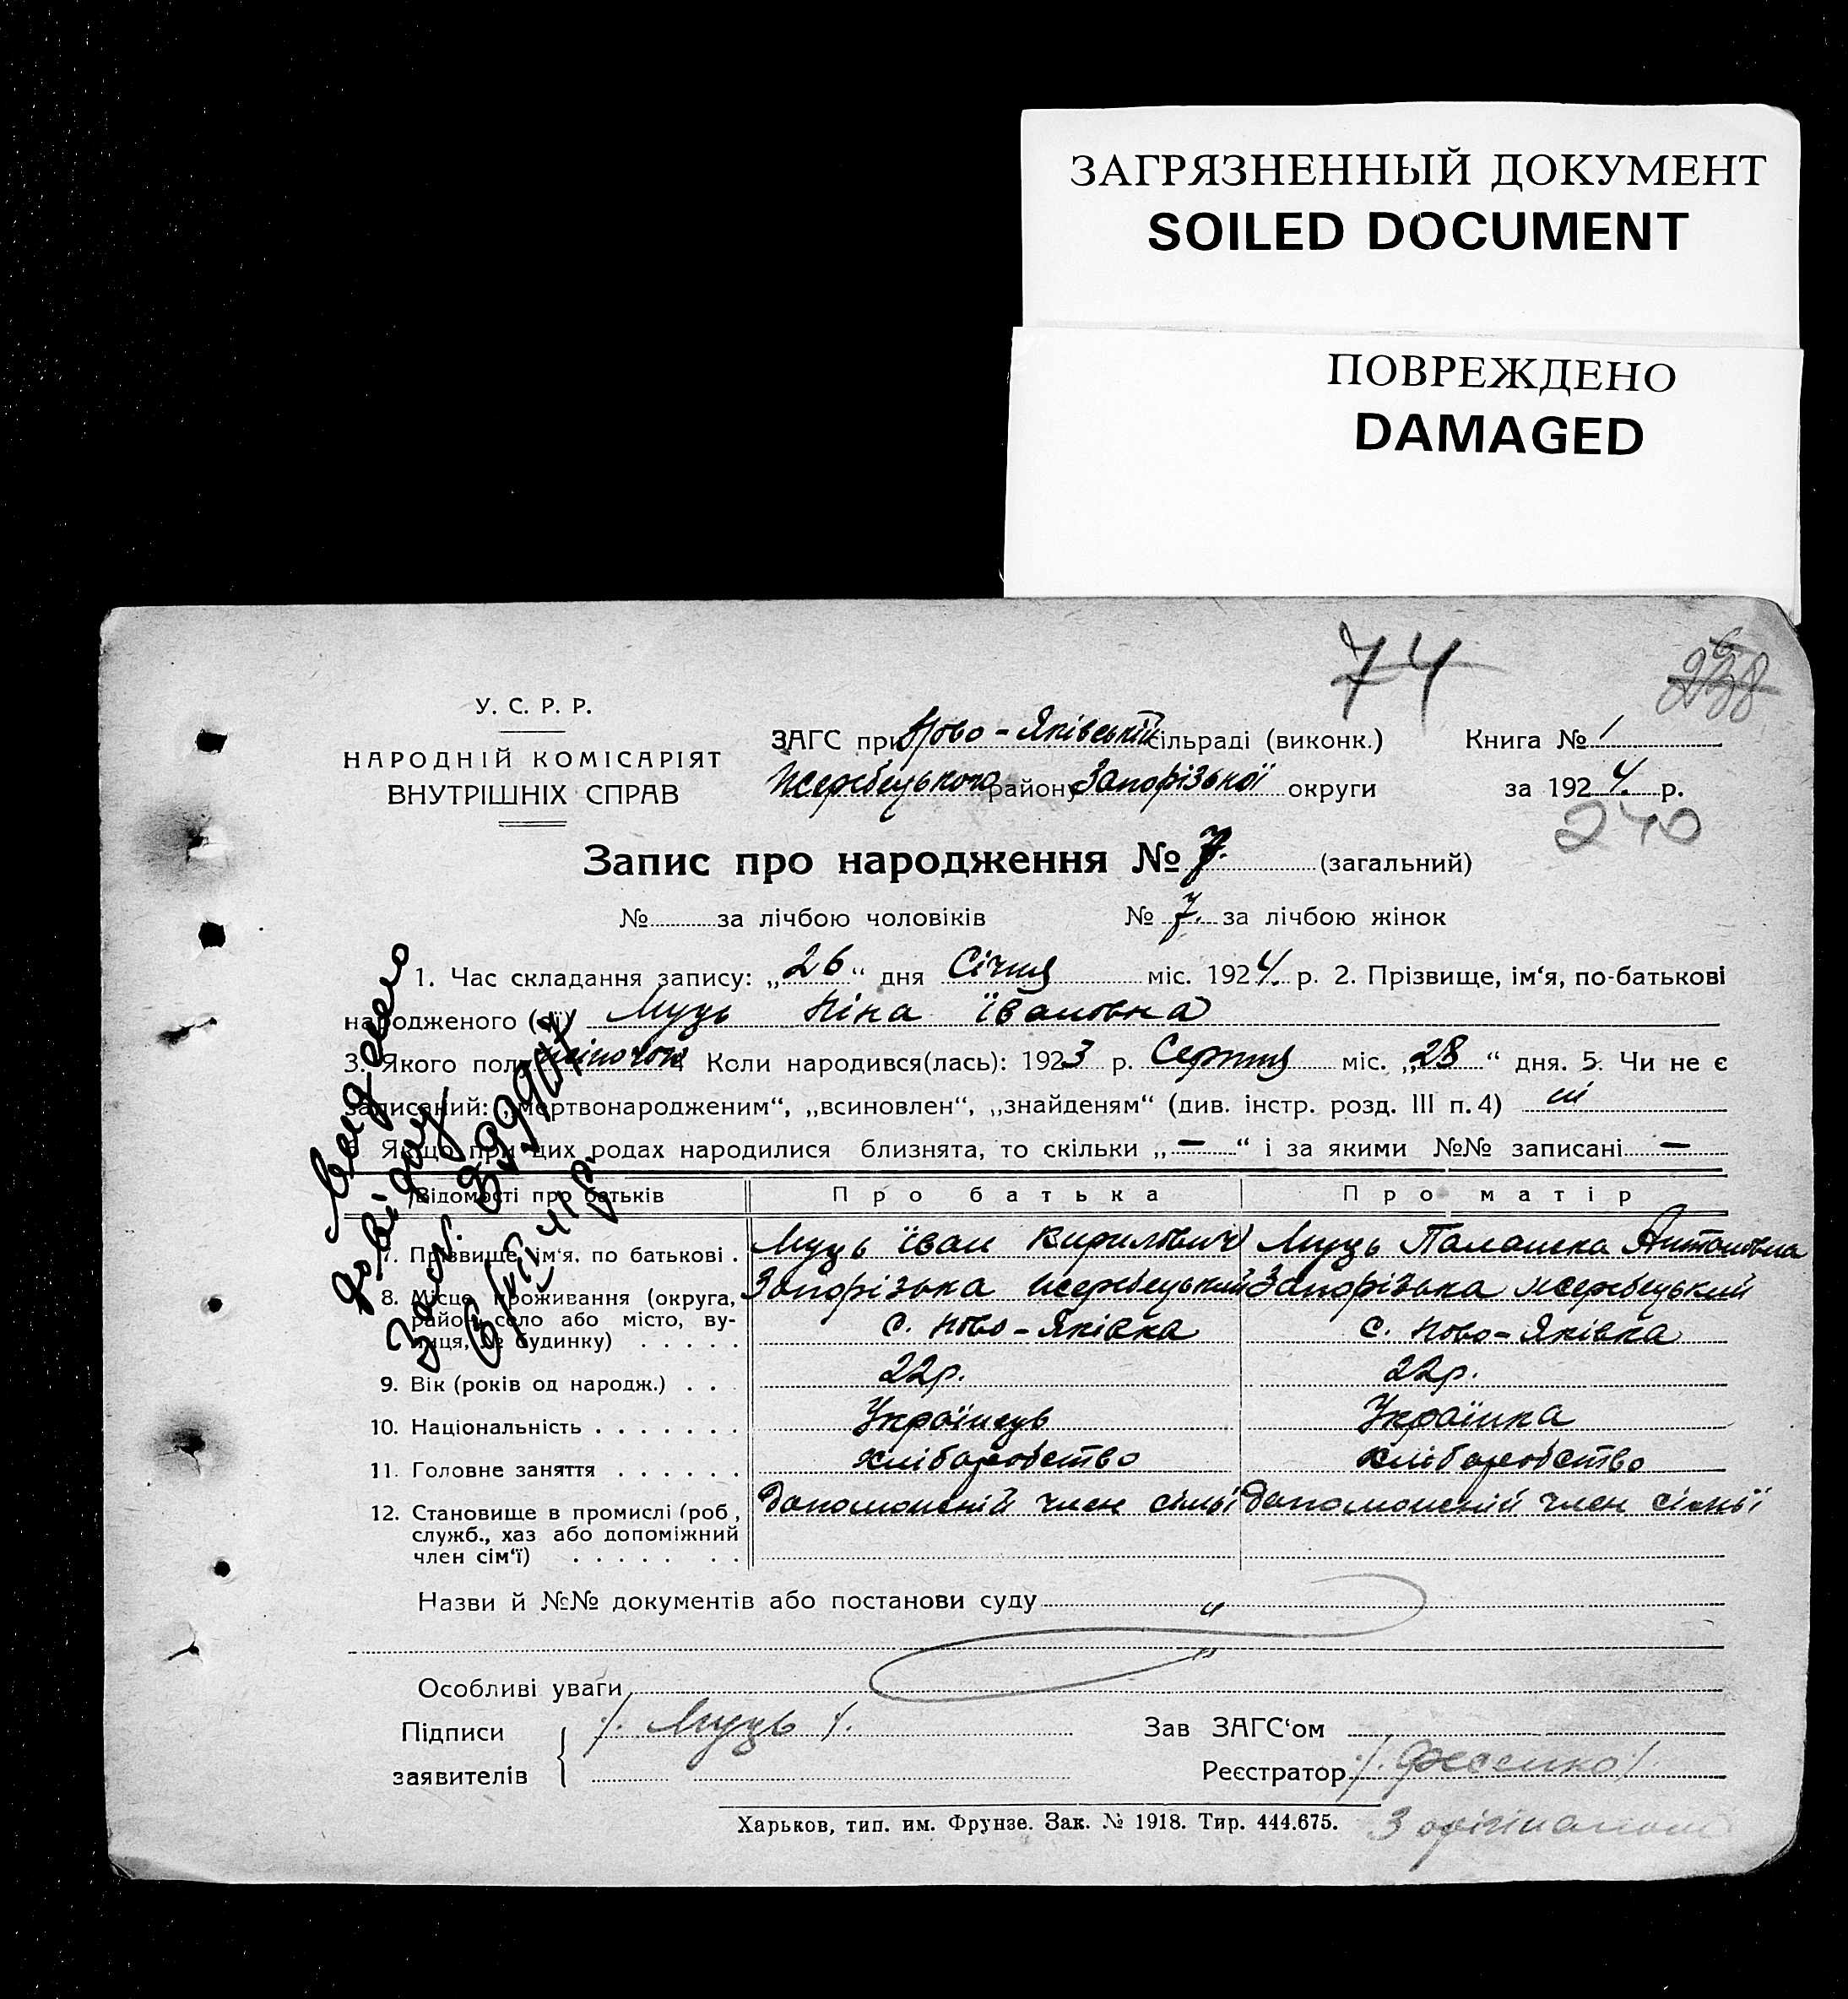 ЗАГРЯЗНЕННЫЙ ДОКУМЕНТ
SOILED DOCUMENT
ПОВРЕЖДЕНО
DAMAGED
74
238
У. С. Р. Р.
НАРОДНІЙ КОМІСАРІЯТ
ВНУТРІШНІХ СПРАВ
ЗАГС при Ново-Яківській сільраді (виконк.) Книга № 1
Жеребецького району Запорізької округи за 1924 р.
240
Запис про народження № 7. (загальний)
№ за лічбою чоловіків № 7. за лічбою жінок
1. Час складання запису: „26“ дня Січня міс. 1924. р. 2. Прізвище, ім‘я, по-батькові
народженого (ї) Муць Ніна Івановна
3. Якого полу жіночої Коли народився(лась): 1923 р. Серпня міс. „28“ дня. 5. Чи не є
записаний: „мертвонародженим“, „всиновлен“, „знайденям“ (див. інстр. розд. III п. 4) ні
Якщо при цих родах народилися близнята, то скільки „—“ і за якими №№ записані —
Видано
довідку
399907
Відомості про батьків Про батька Про матір
7. Прізвище, ім‘я, по батькові . Муць Їван Кирилович Муць Палашка Антоновна
8. Місце проживання (округа, Запорізька Жеребецький Запорізька Жеребецький
район, село або місто, ву-
лиця, № будинку) . . . . . с. Ново-Яківка с. Ново-Яківка
9. Вік (років од народж.) . . . 22р. 22р.
10. Національність . . . . . . . Українець Українка
11. Головне заняття . . . . . . хліборобство хліборобство
12. Становище в промислі (роб, допоможній член сімьї допоможній член сімьї
служб., хаз або допоміжний
член сім‘ї) . . . . . . .
Назви й №№ документів або постанови суду „
„
Особливі уваги
Підписи /. Муць /. Зав ЗАГС‘ом
заявителів Реєстратор
Харьков, тип. им. Фрунзе. Зак. № 1918. Тир. 444.675. З орігіналом